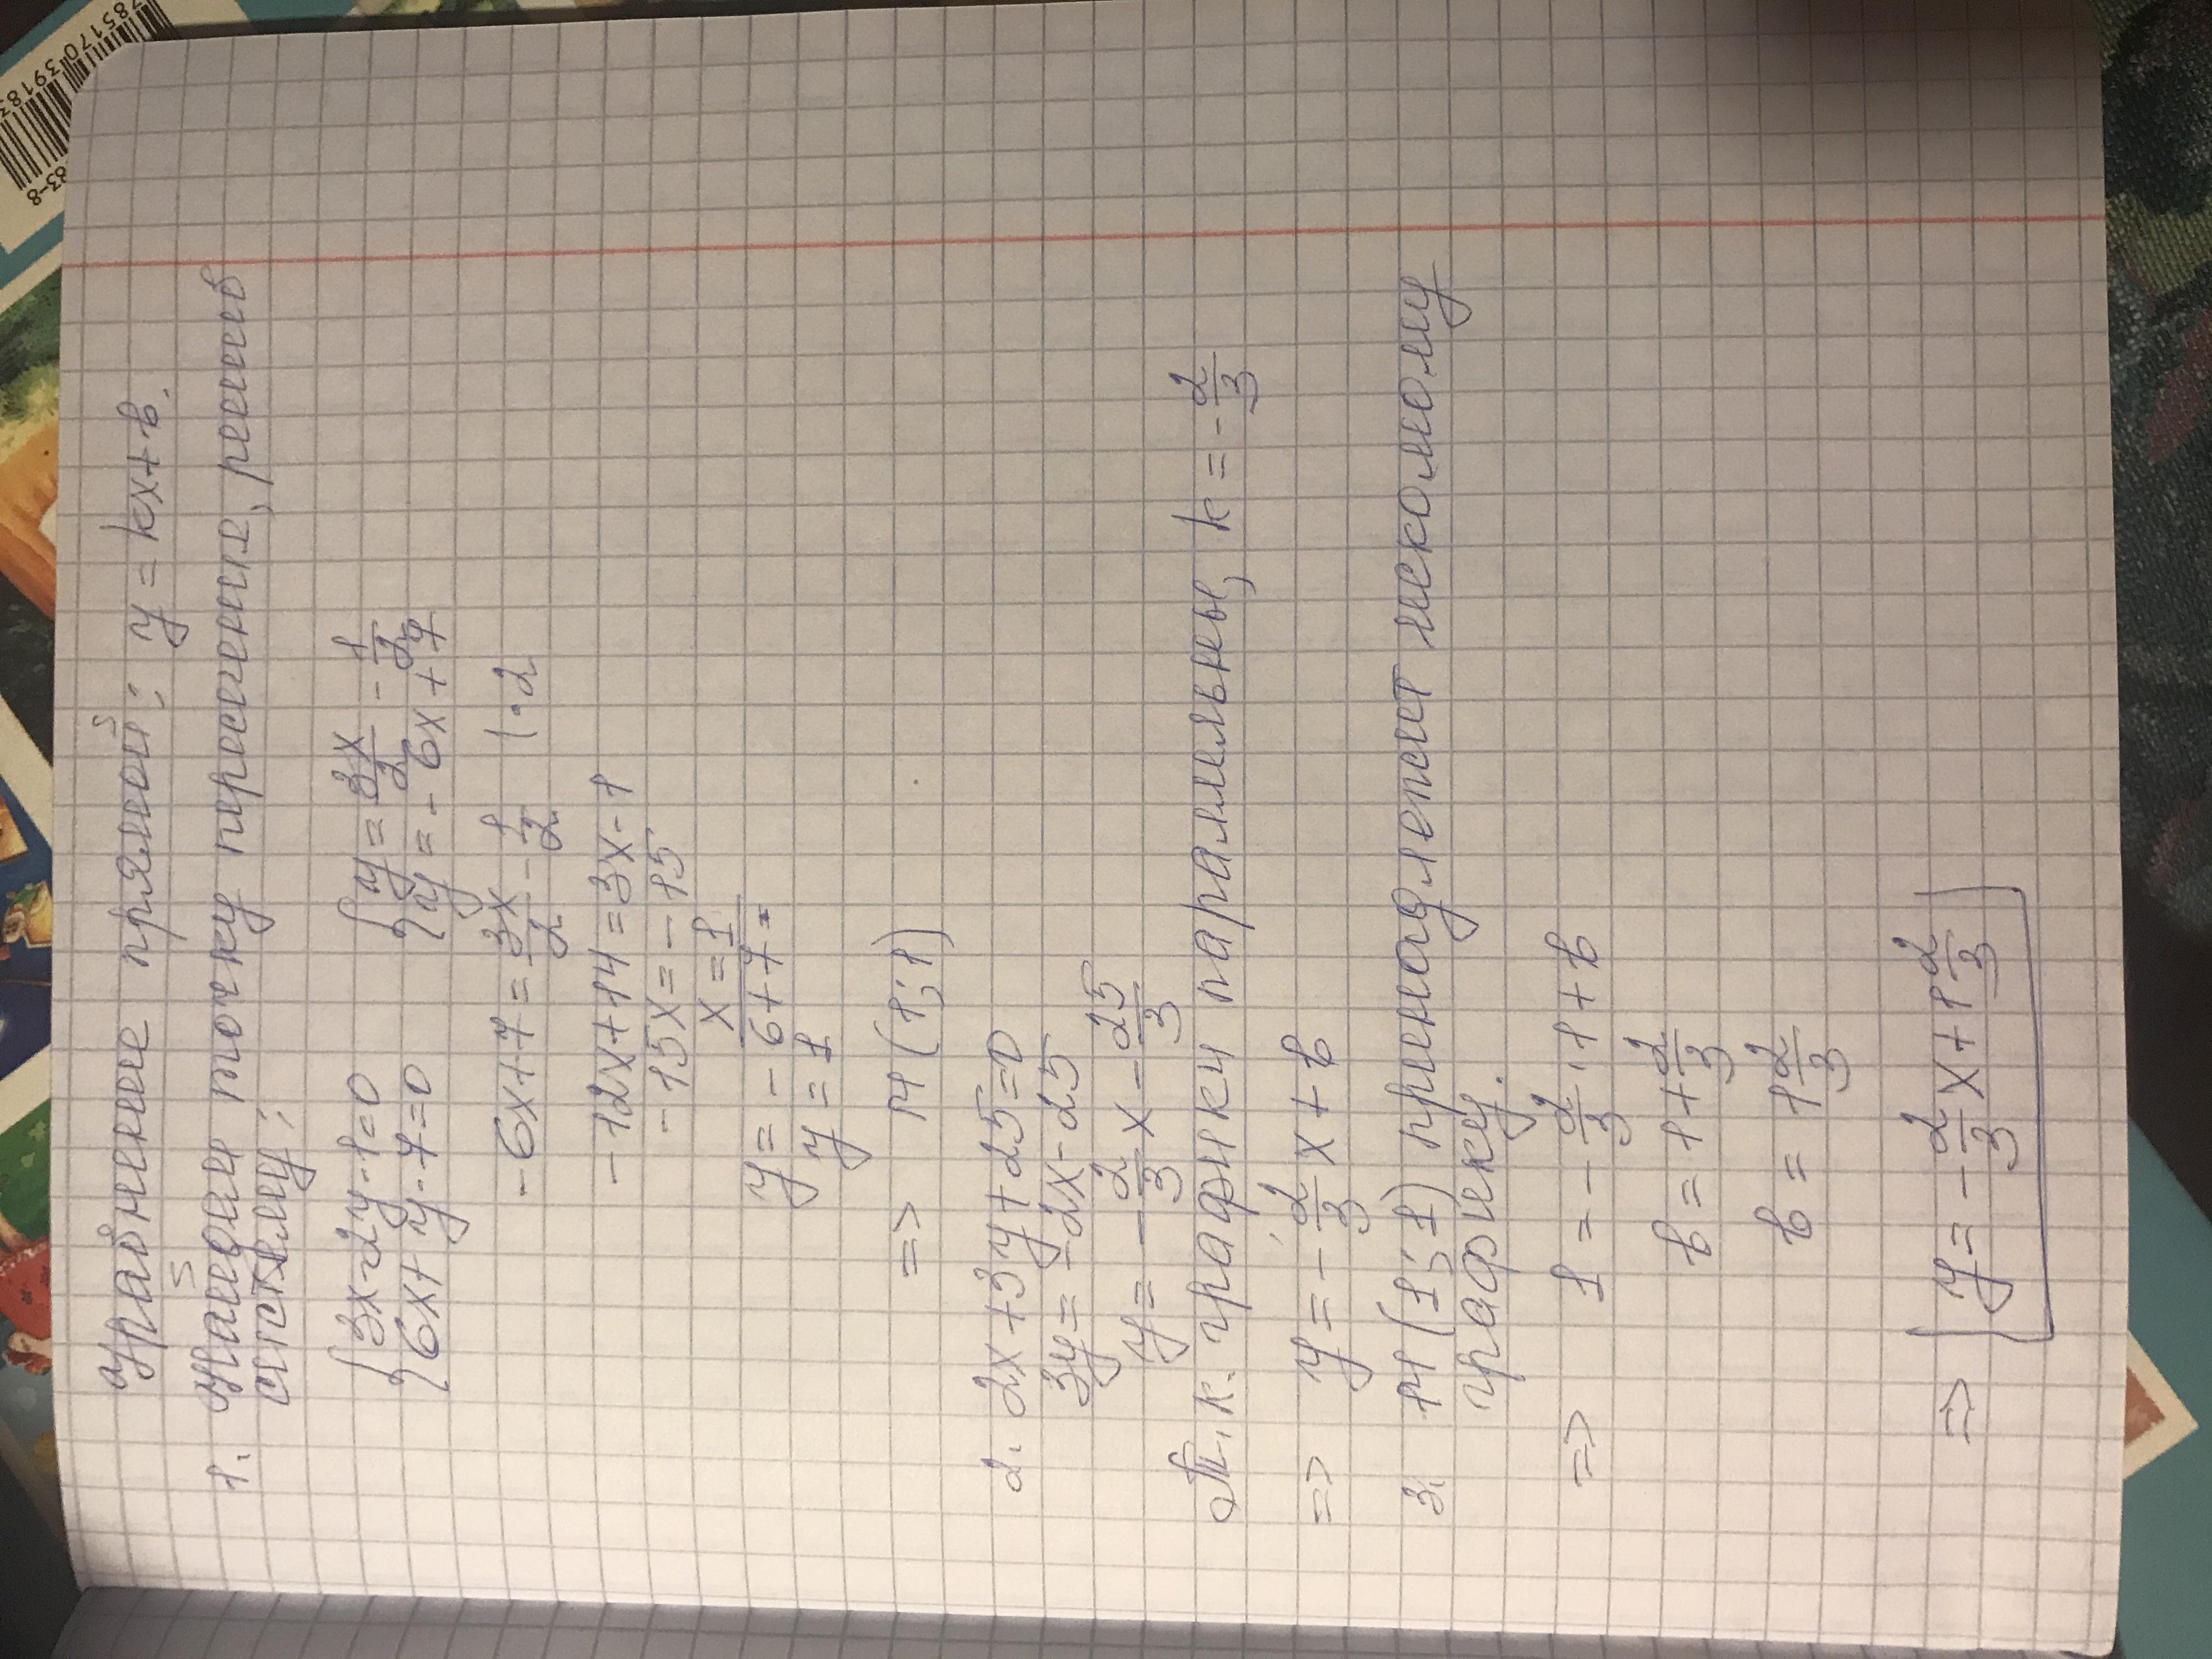 Уравнение прямой: y = kx + b.
1. Найдём точку пересечения, решив
систему:
{ 3x - 2y - 1 = 0   { y = 3x/2 - 1/2
{ 6x + y - 7 = 0   { y = - 6x + 7
- 6x + 7 = 3x/2 - 1/2 | · 2
- 12x + 14 = 3x - 1
- 15x = - 15
x = 1
y = - 6 + 7 =
y = 1
=> M (1; 1)
2. 2x + 3y + 25 = 0
3y = -2x - 25
y = - 2/3 x - 25/3
Т.к. графики параллельны, k = - 2/3
=> y = - 2/3 x + b
3. M (1; 1) принадлежит искомому
графику.
=> 1 = - 2/3 · 1 + b
b = 1 + 2/3
b = 1 2/3
=> y = - 2/3 x + 1 2/3
785170 39183
83-8